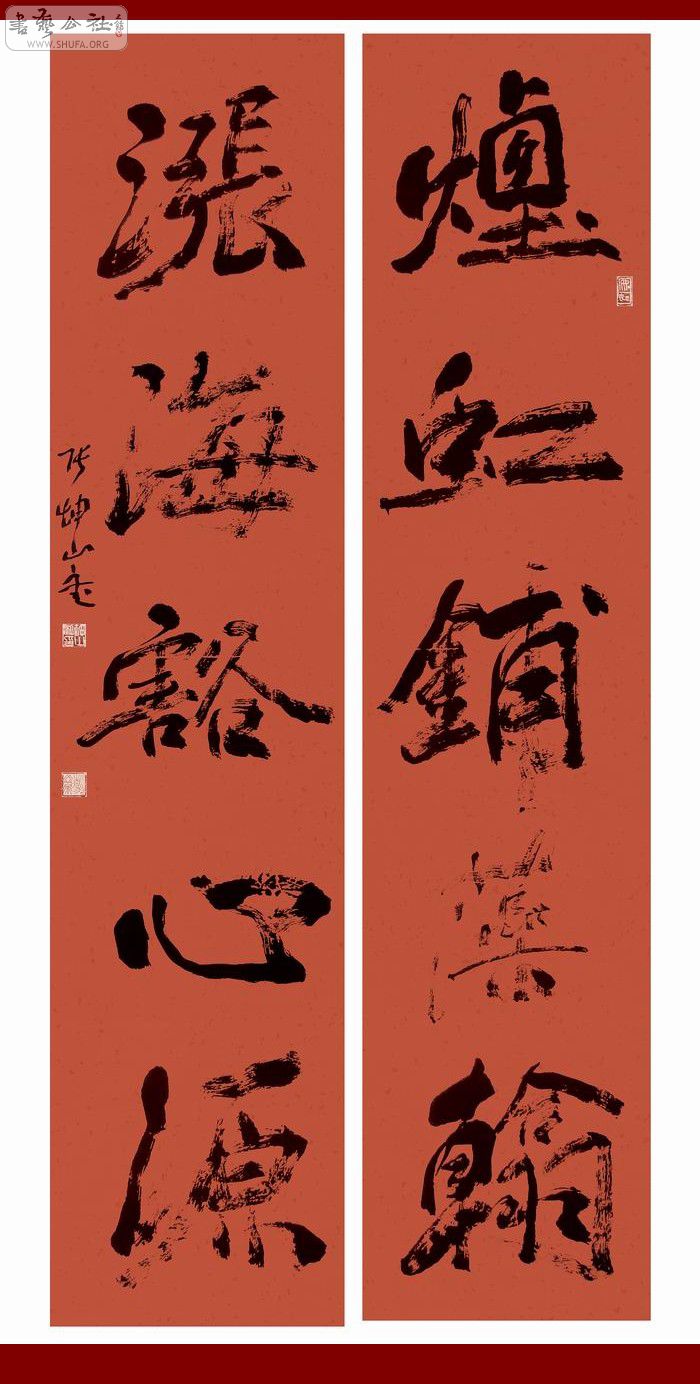 書藝公社
WWW.SHUFA.ORG
煙虹鋪藻翰
漲海豁心源
張坤山書